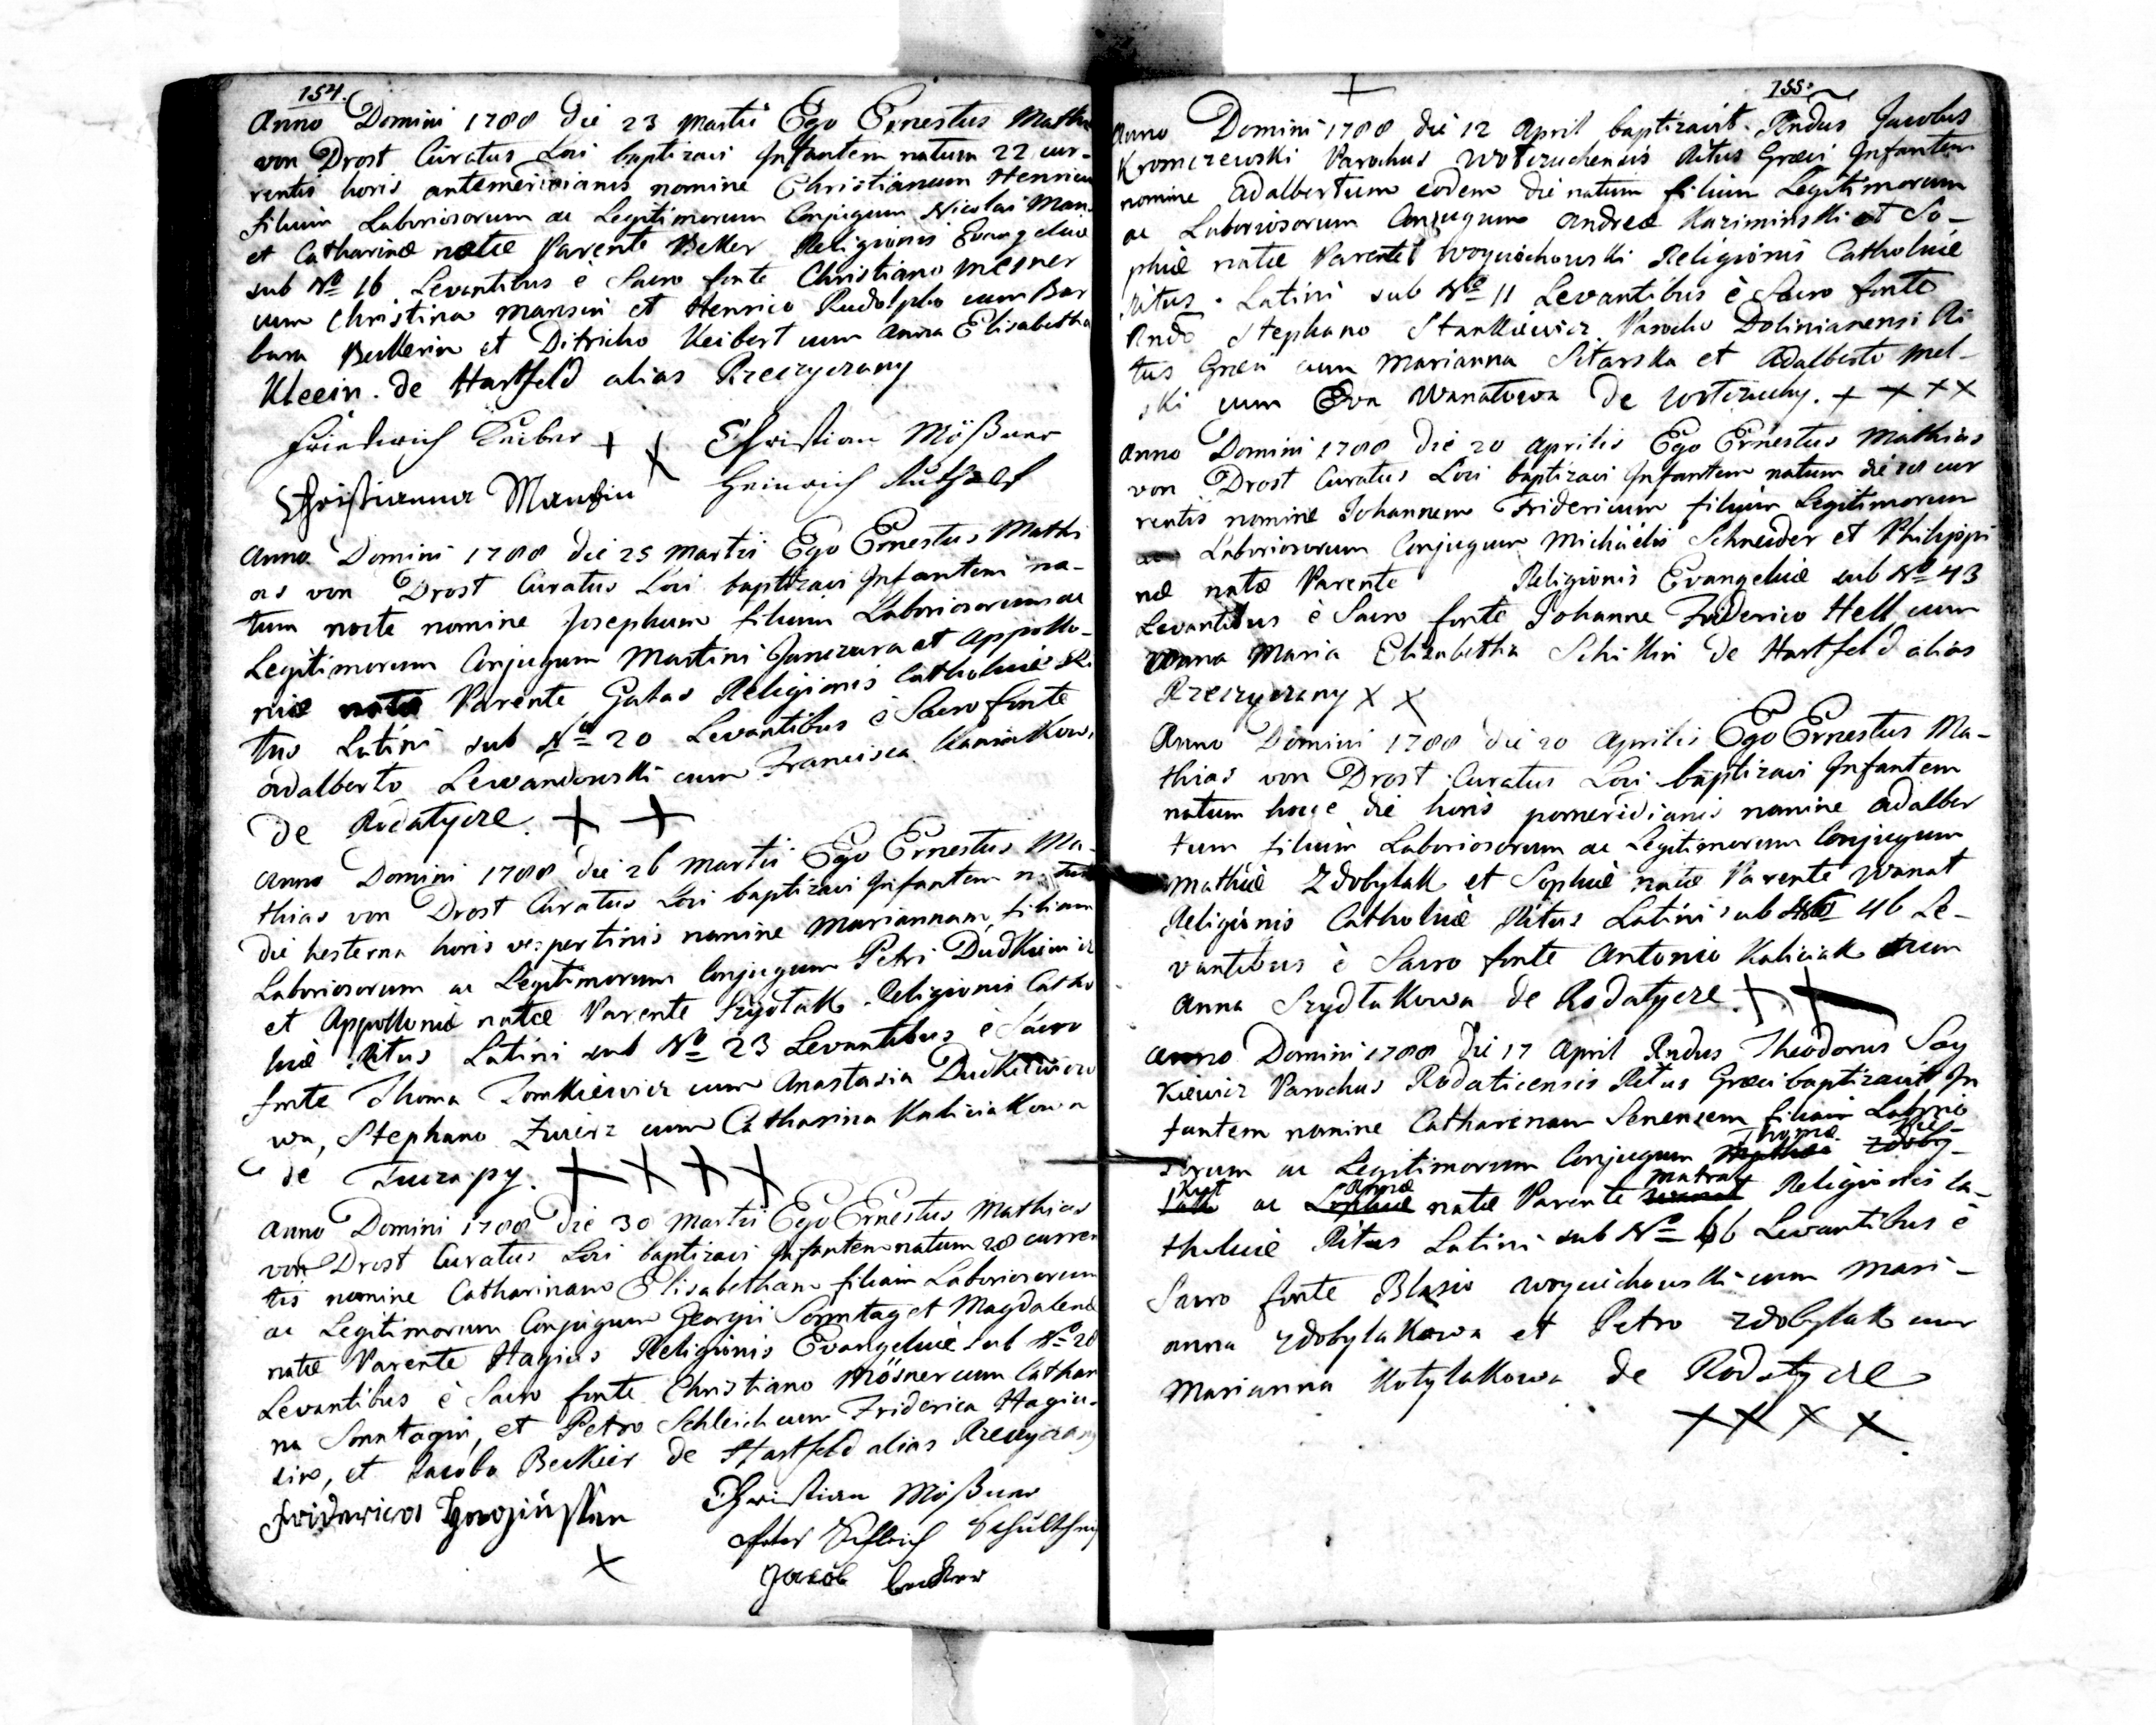 154.
Anno Domini 1788 die 23 Martii Ego Ernestus Mathi
von Drost Curatus Loci baptizavi Infantem natum 22 cur-
rentis horis antemeridianis nomine Christianum Henricu
filium Laboriosorum ac Legitimorum Conjugum Nicolai Man
et Catharinæ natæ Parente Beker Religionis Evangelicæ
sub No 16 Levantibus è Sacro fonte Christiano Mesner
cum Christina Mansin et Henrico Rudolpho cum Bar
bara Bekerin et Ditricho Keibert cum Anna Elisabetha
Kleein. de Hartfeld alias Rzeczyczany
Friedrich Keiber + + Christian Mößner
Christianna Manßin Heinrich
Anno Domini 1788 die 25 Martii Ego Ernestus Mathi
as von Drost Curatus Loci baptizavi Infantem na-
tum nocte nomine Josephum filium Laboriosorum ac
Legitimorum Conjugum Martini Janczura et Appollo-
niæ natæ Parente Galas Religionis Catholicæ Ri
tus Latini sub No 20 Levantibus è Sacro fonte
Adalberto Lewandowski cum Francisca
de Rodatycze. + +
Anno Domini 1788 die 26 Martii Ego Ernestus Ma-
thias von Drost Curatus Loci baptizavi Infantem natum
die hesterna horis vespertinis nomine Mariannam, filiam
Laboriosorum ac Legitimorum Conjugum Petri Dudkiewicz
et Appolloniæ natæ Parente Szydłak Religionis Catho
licæ Ritus Latini sub No 23 Levantibus è Sacro
fonte Thoma Tomkiewicz cum Anastasia Dudkiewiczo
wa, Stephano Zwierz cum Catharina Kaliciakowa
de Tuczapy. + + + +
Anno Domini 1788 die 30 Martii Ego Ernestus Mathias
von Drost Curatus Loci baptizavi Infantem natum 28 curren
tis nomine Catharinam Elisabetham filiam Laboriosorum
ac Legitimorum Conjugum Georgii Sonntag et Magdalenæ
natæ Parente Hagius Religionis Evangelicæ sub No 28
Levantibus è Sacro fonte Christiano Mösner cum Cathari
na Sonntagin, et Petro Schleich cum Friderica Hagiu-
sin, et Jacobo Beckier de Hartfeld alias Rzeczyczany
Christian Mößner
Peter Schleich Schultheiß
+ Jacob becker
155.
+
Anno Domini 1788 die 12 April baptizavit Rndus Jacobus
Kromczewski Parochus Wołczuchensis Ritus Græci Infantem
nomine Adalbertum eodem die natum filium Legitimorum
ac Laboriosorum Conjugum Andreæ Kaziminski et So-
phiæ natæ Parente Woyciechowski Religionis Catholicæ
Ritus Latini sub No 11 Levantibus è Sacro fonte
Rndo Stephano Stankiewicz Parocho Dolinianensi Ri
tus Græci cum Marianna Sitarska et Adalberto Mel-
ski cum Eva Wanatowa de Wołczuchy. + + + +
Anno Domini 1788 die 20 Aprilis Ego Ernestus Mathias
von Drost Curatus Loci baptizavi Infantem natum die 18 cur
rentis nomine Johannem Fridericum filium Legitimorum
ac Laboriosorum Conjugum Michaelis Schneider et Philippi
næ natæ Parente Religionis Evangelicæ sub No 43
Levantibus è Sacro fonte Johanne Friderico Hell cum
Anna Maria Elisabetha Schikin de Hartfeld alias
Rzeczyczany + +
Anno Domini 1788 die 20 Aprilis Ego Ernestus Ma-
thias von Drost Curatus Loci baptizavi Infantem
natum hocce die horis pomeridianis nomine Adalber
tum filium Laboriosorum ac Legitimorum Conjugum
Mathiæ Zdobylak et Sophiæ natæ Parente Wanat
Religionis Catholicæ Ritus Latini sub No 46 Le-
vantibus è Sacro fonte Antonio Kaliciak cum
Anna Szydłakowa de Rodatycze. + +
Anno Domini 1788 die 17 April Rndus Theodorus Say
kiewicz Parochus Rodaticensis Ritus Græci baptizavit In
fantem nomine Catharinam Senensem filiam Laborio
sorum ac Legitimorum Conjugum Thomæ
ac Annæ natæ Parente Religionis Ca-
tholicæ Ritus Latini sub No 66 Levantibus è
Sacro fonte Blasio Woyciechowski cum Mari-
anna Zdobylakowa et Petro Zdobylak cum
Marianna Kotylakowa de Rodatycze
+ + + +